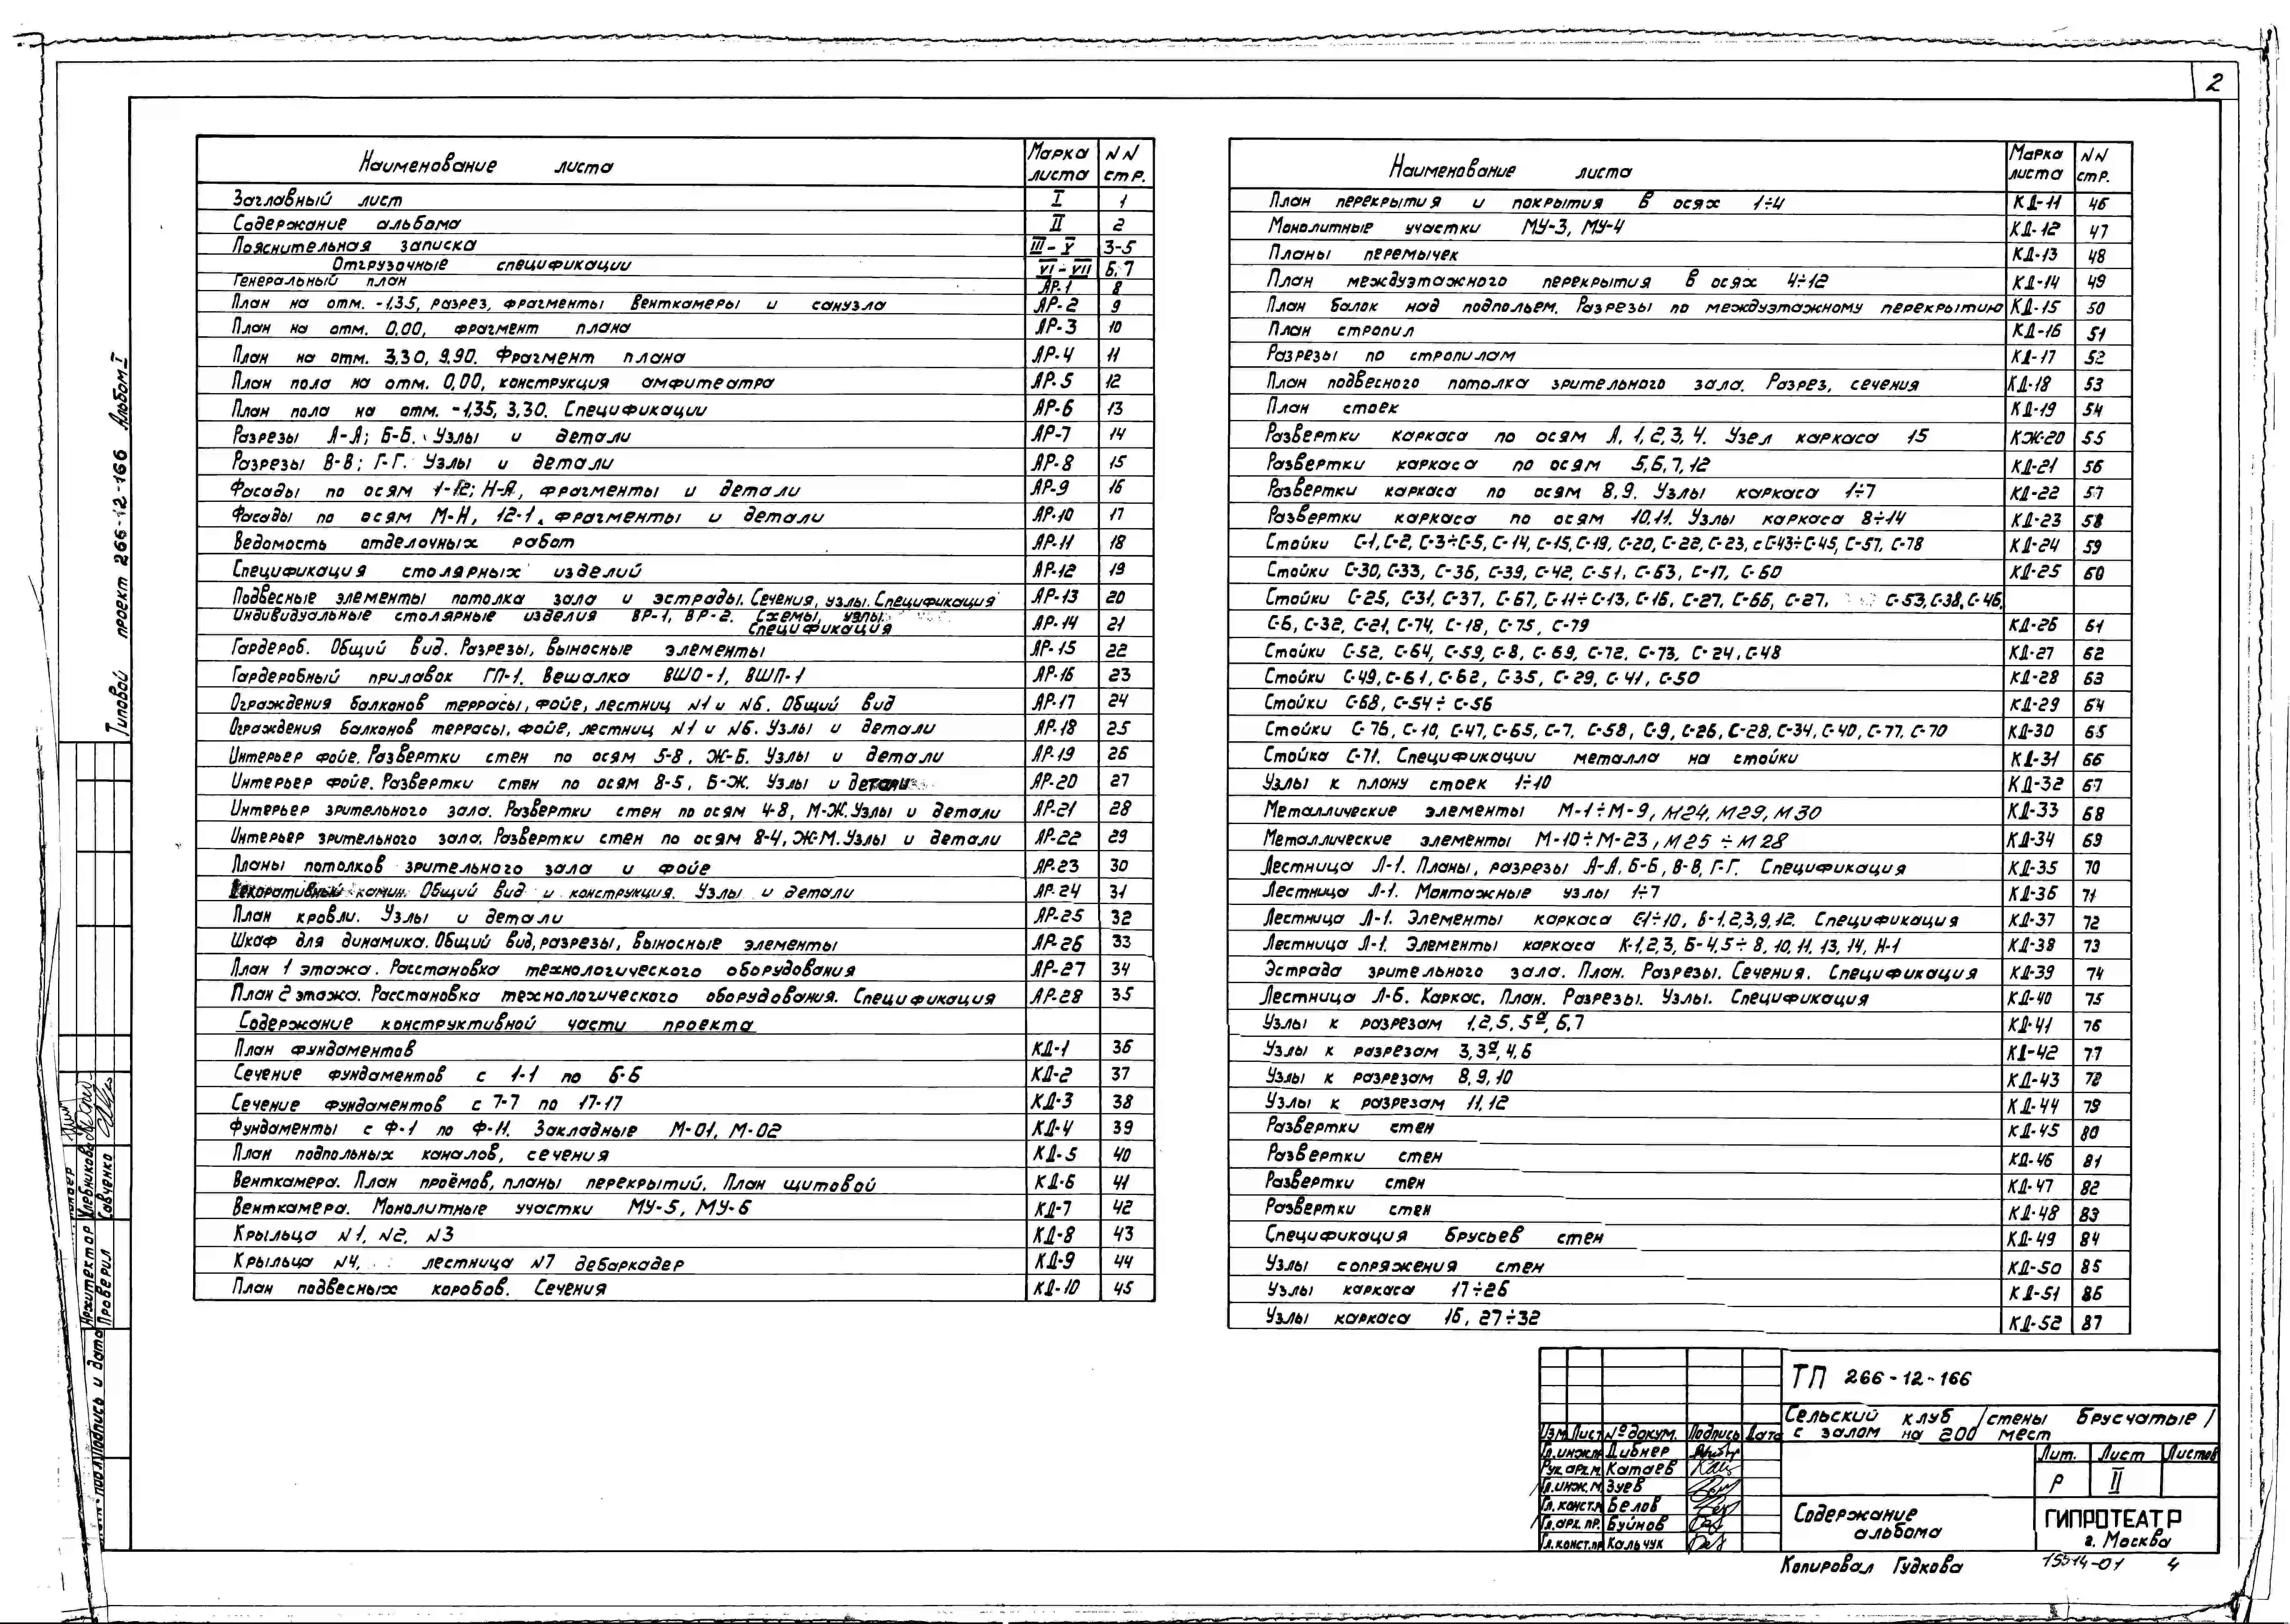 2
Типовой проект 266-12-166 Альбом I
Наименование листа Марка листа NN стр.
Заглавный лист I 1
Содержание альбома II 2
Пояснительная записка III-V 3-5
Отгрузочные спецификации VI-VII 6,7
Генеральный план АР-1 8
План на отм. -1.35, разрез, фрагменты венткамеры и санузла АР-2 9
План на отм. 0,00, фрагмент плана АР-3 10
План на отм. 3,30, 9,90. Фрагмент плана АР-4 11
План пола на отм. 0,00, конструкция амфитеатра АР-5 12
План пола на отм. -1,35, 3,30. Спецификации АР-6 13
Разрезы А-А; Б-Б. Узлы и детали АР-7 14
Разрезы В-В; Г-Г. Узлы и детали АР-8 15
Фасады по осям 1-12; Н-А, фрагменты и детали АР-9 16
Фасады по осям М-Н, 12-1, фрагменты и детали АР-10 17
Ведомость отделочных работ АР-11 18
Спецификация столярных изделий АР-12 19
Подвесные элементы потолка зала и эстрады. Сечения, узлы. Спецификация АР-13 20
Индивидуальные столярные изделия ВР-1, ВР-2. Схемы, узлы.
Спецификация АР-14 21
Гардероб. Общий вид. Разрезы, выносные элементы АР-15 22
Гардеробный прилавок ГП-1. Вешалка ВШО-1, ВШП-1 АР-16 23
Ограждения балконов террасы, фойе, лестниц N1 и N6. Общий вид АР-17 24
Ограждения балконов террасы, фойе, лестниц N1 и N6. Узлы и детали АР-18 25
Интерьер фойе. Развертки стен по осям 5-8, Ж-Б. Узлы и детали АР-19 26
Интерьер фойе. Развертки стен по осям 8-5, Б-Ж. Узлы и детали АР-20 27
Интерьер зрительного зала. Развертки стен по осям 4-8, М-Ж. Узлы и детали АР-21 28
Интерьер зрительного зала. Развертки стен по осям 8-4, Ж-М. Узлы и детали АР-22 29
Планы потолков зрительного зала и фойе АР-23 30
Декоративный камин. Общий вид и конструкция. Узлы и детали АР-24 31
План кровли. Узлы и детали АР-25 32
Шкаф для динамика. Общий вид, разрезы, выносные элементы АР-26 33
План 1 этажа. Расстановка технологического оборудования АР-27 34
План 2 этажа. Расстановка технологического оборудования. Спецификация АР-28 35
Содержание конструктивной части проекта
План фундаментов КД-1 36
Сечение фундаментов с 1-1 по 6-6 КД-2 37
Сечение фундаментов с 7-7 по 17-17 КД-3 38
Фундаменты с Ф-1 по Ф-11. Закладные М-01, М-02 КД-4 39
План подпольных каналов, сечения КД-5 40
Венткамера. План проёмов, планы перекрытий. План щитовой КД-6 41
Венткамера. Монолитные участки МУ-5, МУ-6 КД-7 42
Крыльца N1, N2, N3 КД-8 43
Крыльца N4, лестница N7 дебаркадер КД-9 44
План подвесных коробов. Сечения КД-10 45
Наименование листа Марка листа NN стр.
План перекрытия и покрытия в осях 1÷4 КД-11 46
Монолитные участки МУ-3, МУ-4 КД-12 47
Планы перемычек КД-13 48
План междуэтажного перекрытия в осях 4÷12 КД-14 49
План балок над подпольем. Разрезы по междуэтажному перекрытию КД-15 50
План стропил КД-16 51
Разрезы по стропилам КД-17 52
План подвесного потолка зрительного зала. Разрез, сечения КД-18 53
План стоек КД-19 54
Развертки каркаса по осям А, 1,2,3,4. Узел каркаса 15 КЖ-20 55
Развертки каркаса по осям 5,6,7,12 КД-21 56
Развертки каркаса по осям 8,9. Узлы каркаса 1÷7 КД-22 57
Развертки каркаса по осям 10,11. Узлы каркаса 8÷14 КД-23 58
Стойки С-1, С-2, С-3÷С-5, С-14, С-15, С-19, С-20, С-22, С-23, с С-43÷С-45, С-57, С-78 КД-24 59
Стойки С-30, С-33, С-36, С-39, С-42, С-51, С-63, С-17, С-60 КД-25 60
Стойки С-25, С-31, С-37, С-67, С-11÷С-13, С-16, С-27, С-66, С-27, С-53, С-38, С-46,
С-6, С-32, С-21, С-74, С-18, С-75, С-79 КД-26 61
Стойки С-52, С-64, С-59, С-8, С-69, С-72, С-73, С-24, С-48 КД-27 62
Стойки С-49, С-61, С-62, С-35, С-29, С-41, С-50 КД-28 63
Стойки С-68, С-54÷С-56 КД-29 64
Стойки С-76, С-10, С-47, С-65, С-7, С-58, С-9, С-26, С-28, С-34, С-40, С-77, С-70 КД-30 65
Стойка С-71. Спецификации металла на стойки КД-31 66
Узлы к плану стоек 1÷10 КД-32 67
Металлические элементы М-1÷М-9, М24, М29, М30 КД-33 68
Металлические элементы М-10÷М-23, М25÷М28 КД-34 69
Лестница Л-1. Планы, разрезы А-А, Б-Б, В-В, Г-Г. Спецификация КД-35 70
Лестница Л-1. Монтажные узлы 1÷7 КД-36 71
Лестница Л-1. Элементы каркаса С1÷10, Б-1,2,3,9,12. Спецификация КД-37 72
Лестница Л-1. Элементы каркаса К-1,2,3, Б-4,5÷8, 10, 11, 13, 14, Н-1 КД-38 73
Эстрада зрительного зала. План. Разрезы. Сечения. Спецификация КД-39 74
Лестница Л-6. Каркас. План. Разрезы. Узлы. Спецификация КД-40 75
Узлы к разрезам 1,2,5,5а,6,7 КД-41 76
Узлы к разрезам 3,3а,4,6 КД-42 77
Узлы к разрезам 8,9,10 КД-43 78
Узлы к разрезам 11,12 КД-44 79
Развертки стен КД-45 80
Развертки стен КД-46 81
Развертки стен КД-47 82
Развертки стен КД-48 83
Спецификация брусьев стен КД-49 84
Узлы сопряжения стен КД-50 85
Узлы каркаса 17÷26 КД-51 86
Узлы каркаса 16, 27÷32 КД-52 87
Архитектор Хлебникова
Проверил Савченко
Подпись и дата
ТП 266-12-166
Сельский клуб /стены брусчатые/
с залом на 200 мест
Изм. Лист №докум. Подпись Дата
Гл.инж.пр. Дибнер
Рук.арх.м. Катаев
Гл.инж.м. Зуев
Гл.конст.м. Белов
Гл.арх.пр. Буйнов
Гл.конст.пр. Кальчук
Лит. Лист Листов
Р II
Содержание
альбома
ГИПРОТЕАТР
г. Москва
Копировал Гудкова 15514-01 4